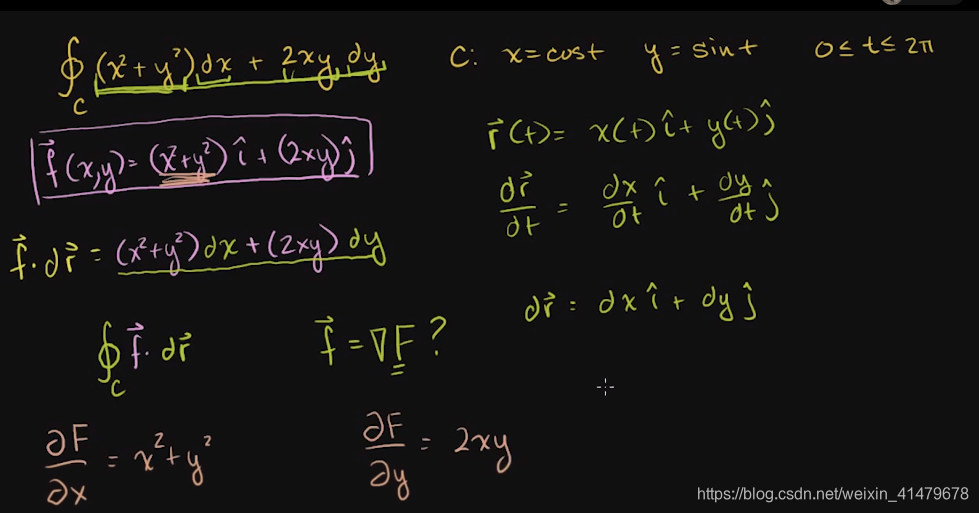 ∮_C (x² + y²) dx + 2xy dy   C: x = cos t   y = sin t   0 ≤ t ≤ 2π
f⃗(x,y) = (x² + y²) î + (2xy) ĵ
r⃗(t) = x(t) î + y(t) ĵ
dr⃗/dt = dx/dt î + dy/dt ĵ
f⃗ · dr⃗ = (x² + y²) dx + (2xy) dy
dr⃗ = dx î + dy ĵ
∮_C f⃗ · dr⃗   f⃗ = ∇F ?
∂F/∂x = x² + y²   ∂F/∂y = 2xy
https://blog.csdn.net/weixin_41479678